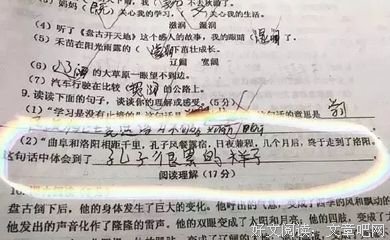 (3)妈妈( )关心我的学习,( )关心我的生活。
滋润 湿润
(4)听了《盘古开天地》这个感人的故事,我的眼睛(湿润)了。
(5)禾苗在阳光雨露的(滋润)下茁壮成长。
辽阔 宽阔
(6)(辽阔)的大草原一眼望不到边。
(7)汽车行驶在比较(宽阔)的公路上。
9.读读下面的句子,谈谈你的理解或感受。(5分)
(1)“学习是没有止境的”
(2)“曲阜和洛阳相距千里,孔子风餐露宿,日夜兼程,几个月后,终于走到了洛阳。”
这句话中体会到了 孔子很累的样子
阅读理解(17分)
盘古倒下后,他的身体发生了巨大的变化。他呼出的气息,变成了四季的风和飘动的
他发出的声音化作了隆隆的雷声。他的双眼变成了太阳和月亮,他的四肢,变成了
好文阅读:文章吧网